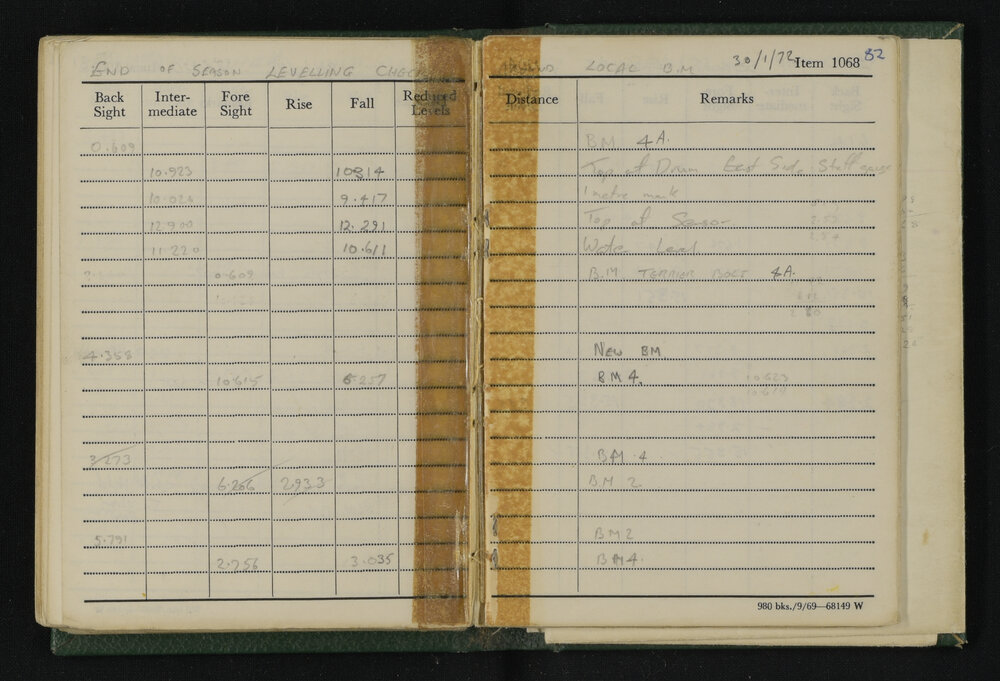 END OF SEASON LEVELLING CHECK AROUND LOCAL B.M 30/1/72 Item 1068 82
Back Sight Inter-mediate Fore Sight Rise Fall Reduced Levels Distance Remarks
0.609 BM 4A.
10.923 10314 Top of Drum East Side, Staff gauge
9.417 1 metre mark
12.900 12.291 Top of Sensor
11.220 10.611 Water Level
0.609 B.M TERRIER BOLT 4A.
4.358 NEW BM
10.615 6.257 BM 4. 10.623
3/273 BM 4
6.266 2933 BM 2.
5.791 BM2
2.756 3.035 BM4.
980 bks./9/69—68149 W